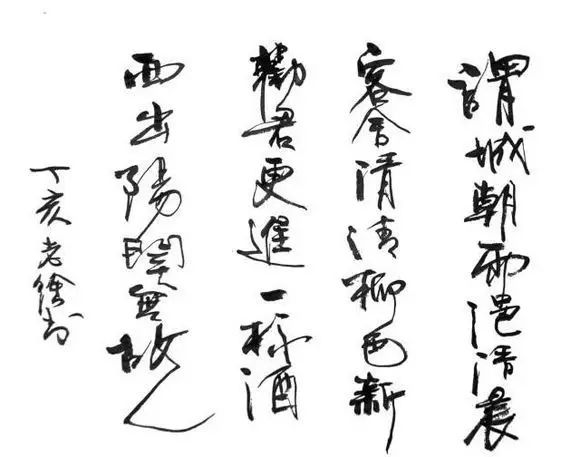 謂城朝雨浥清晨
客舍清清柳色新
勸君更進一杯酒
西出陽關無故人
丁亥老徐書